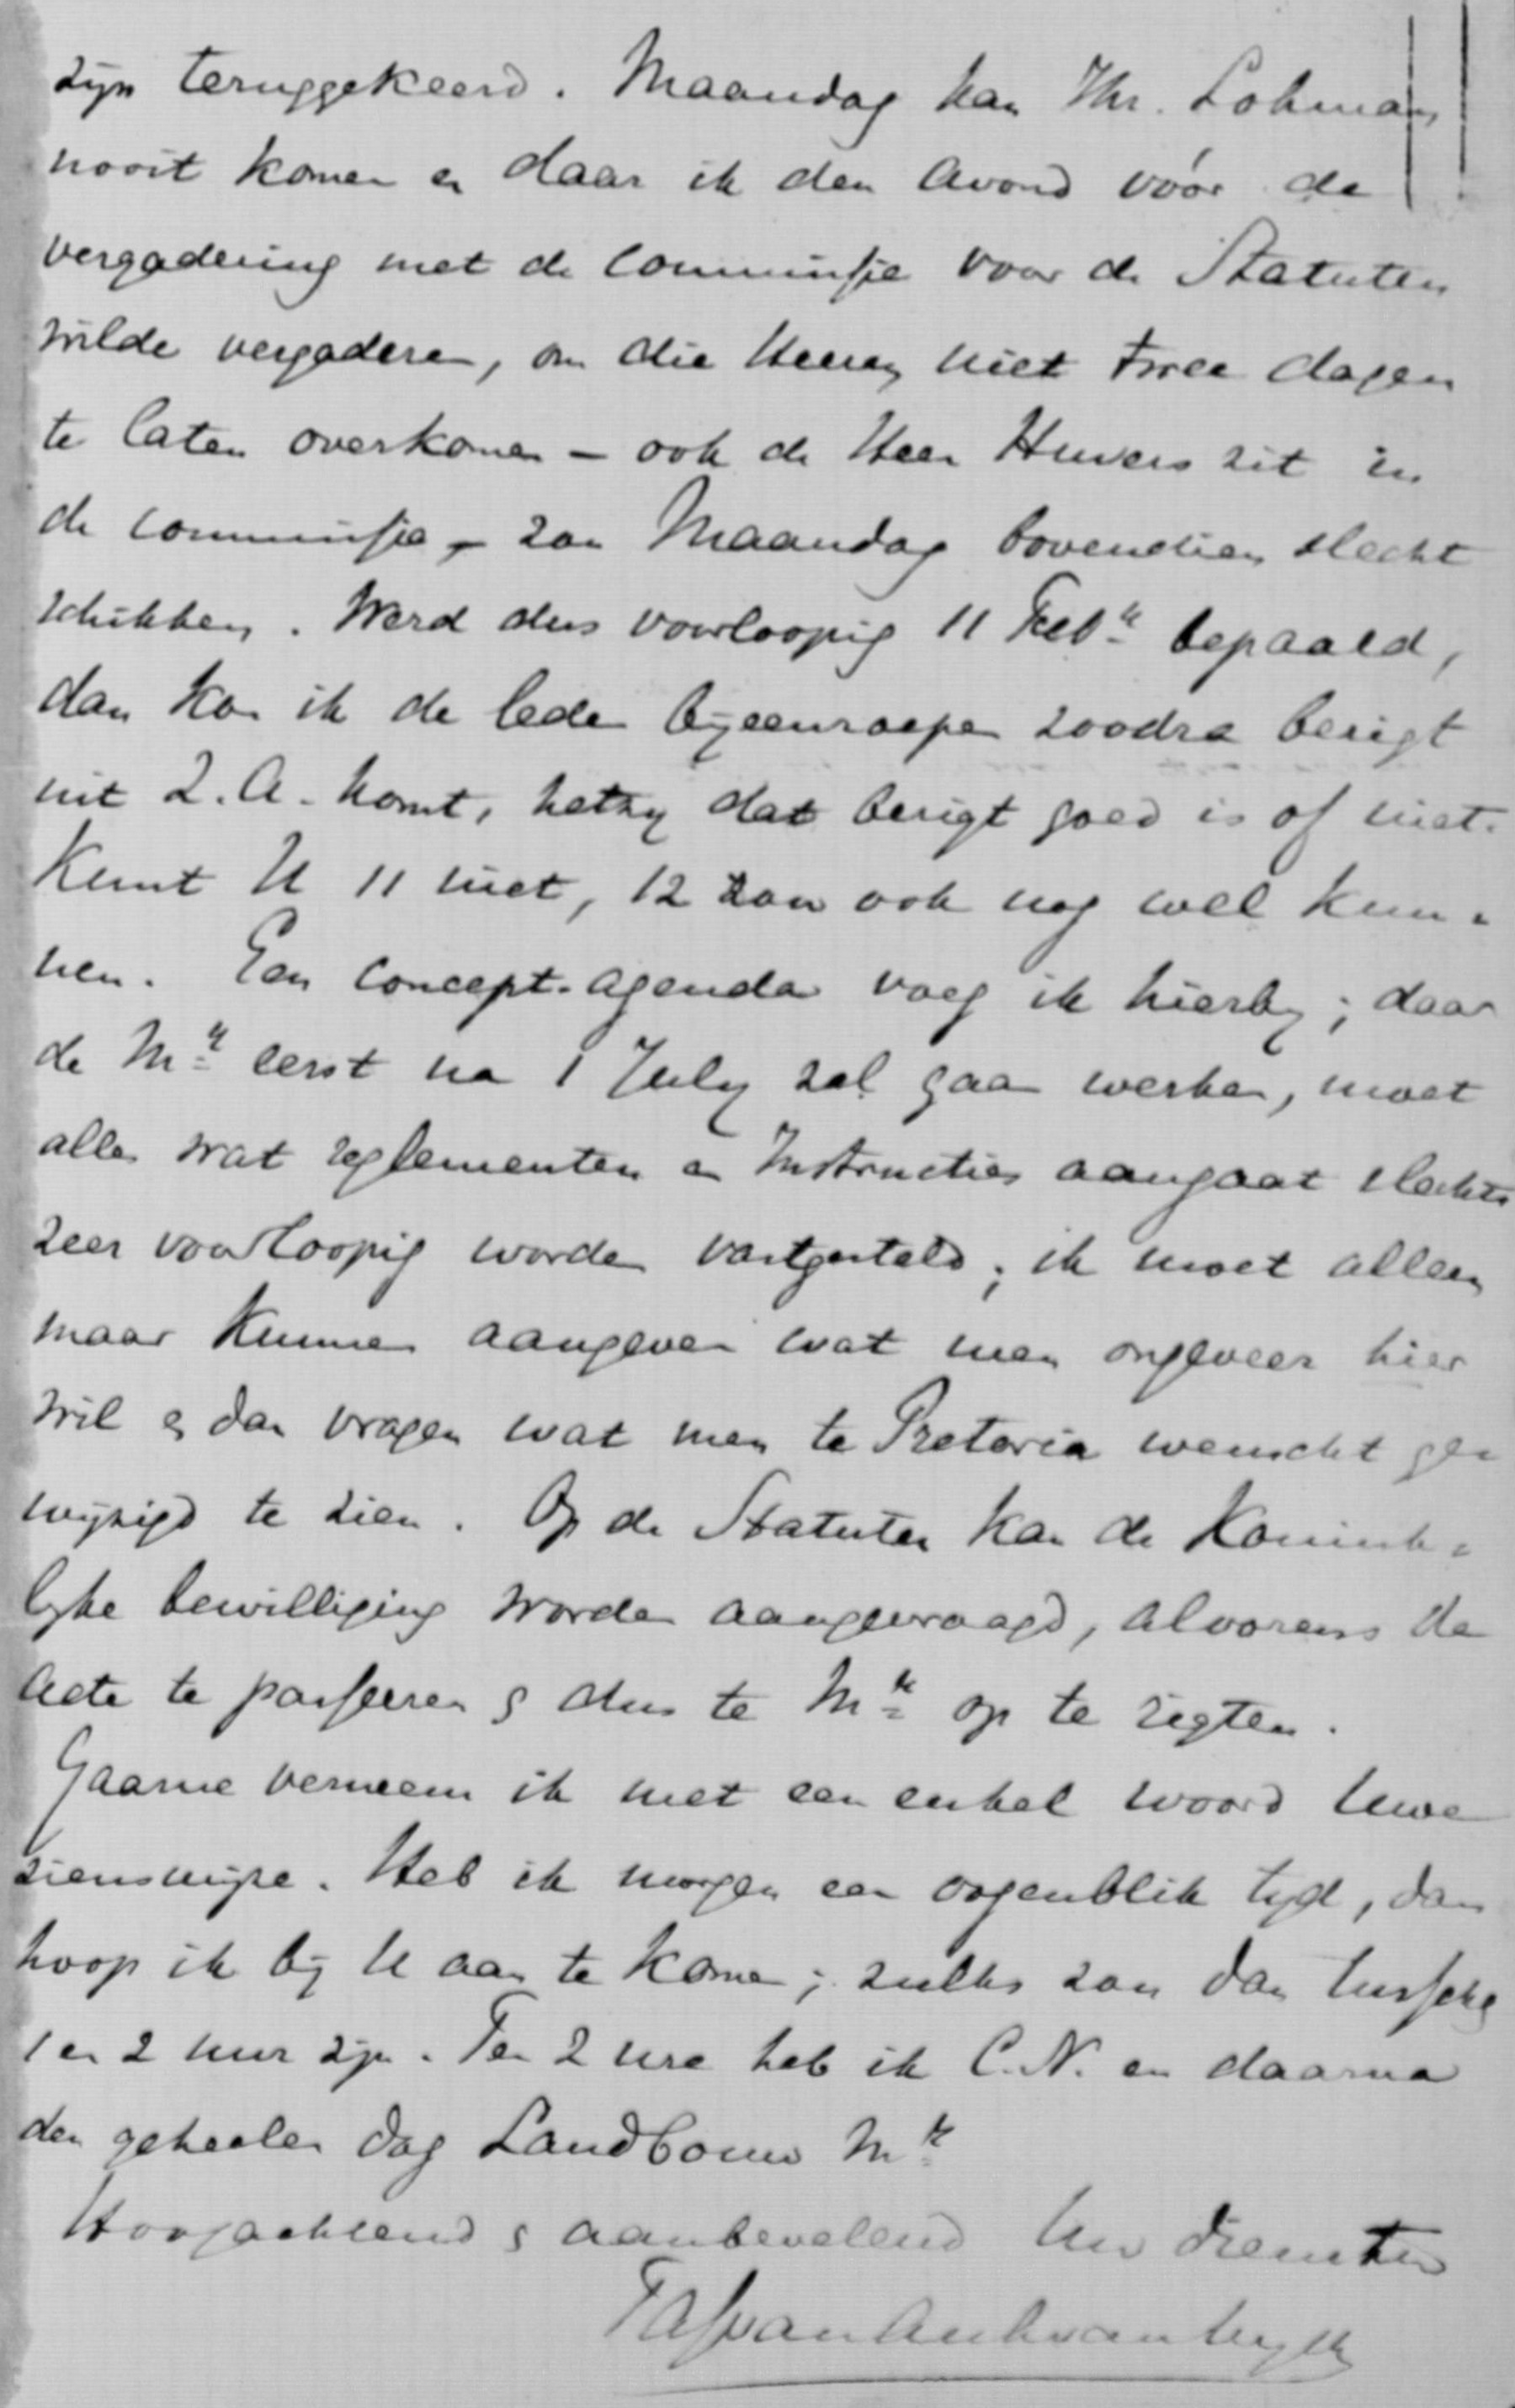 zijn teruggekeerd. Maandag kan Jhr. Lohman
nooit komen en daar ik den avond vóór de
vergadering met de Commissie voor de Statuten
wilde vergaderen, om die Heeren niet twee dagen
te laten overkomen – ook de Heer Huvers zit in
de Commissie – zou Maandag bovendien slecht
schikken. Werd dus voorloopig 11 Feb<sup>r</sup> bepaald,
dan kon ik de leden bijeenroepen zoodra berigt
uit Z.A. komt, hetzij dat berigt goed is of niet.
Kunt U 11 niet, 12 zou ook nog wel kun-
nen. Een concept-agenda voeg ik hierbij; daar
de M<sup>ij</sup> eerst na 1 July zal gaan werken, moet
alles wat reglementen en Instructies aangaat slechts
zeer voorloopig worden vastgesteld; ik moet alleen
maar kunnen aangeven wat men ongeveer hier
wil en dan vragen wat men te Pretoria wenscht ge-
wijzigd te zien. Op de Statuten kan de Konink-
lijke bewilliging worden aangevraagd, alvorens de
acte te passeeren & dus te M<sup>ij</sup> op te rigten.
Gaarne verneem ik met een enkel woord Uwe
zienswijze. Heb ik morgen een oogenblik tijd, dan
hoop ik bij U aan te komen; zulks zou dan tusschen
1 en 2 uur zijn. Ten 2 ure heb ik C.N. en daarna
den geheelen dag Landbouw M<sup>ij</sup>
Hoogachtend & aanbevelend Uw dienstw